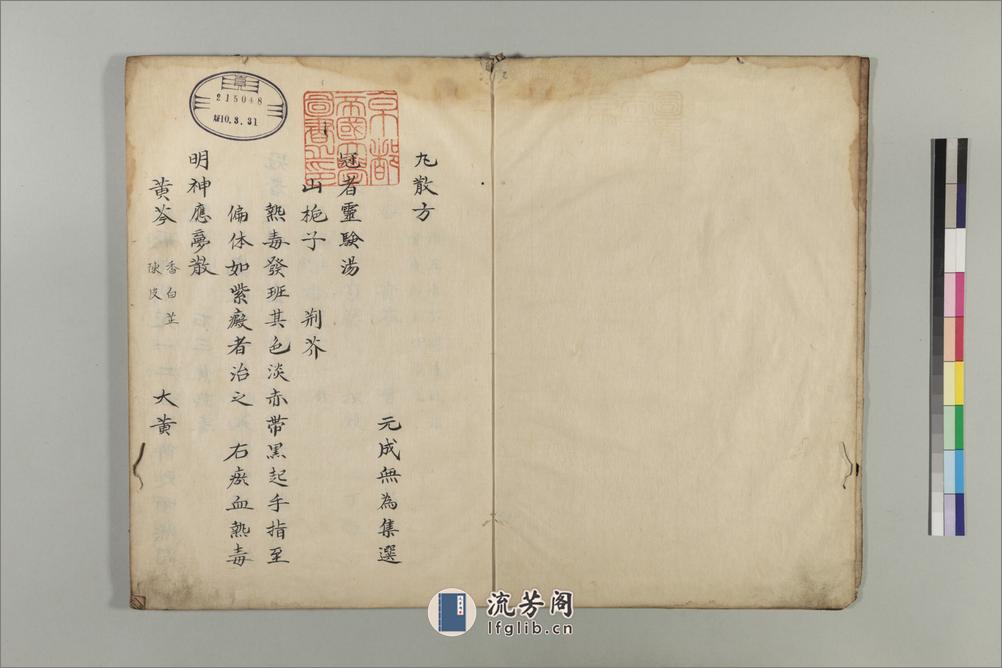 丸散方
元成無為集選
冠者靈験湯
山梔子 荆芥
熱毒發班其色淡赤帶黒起手指至
偏体如紫癜者治之 右瘀血熱毒
明神應夢散
黄芩 香白芷 陳皮 大黄
京都
帝國大學
圖書之印
215048
昭10.3.31
流芳阁
lfglib.cn